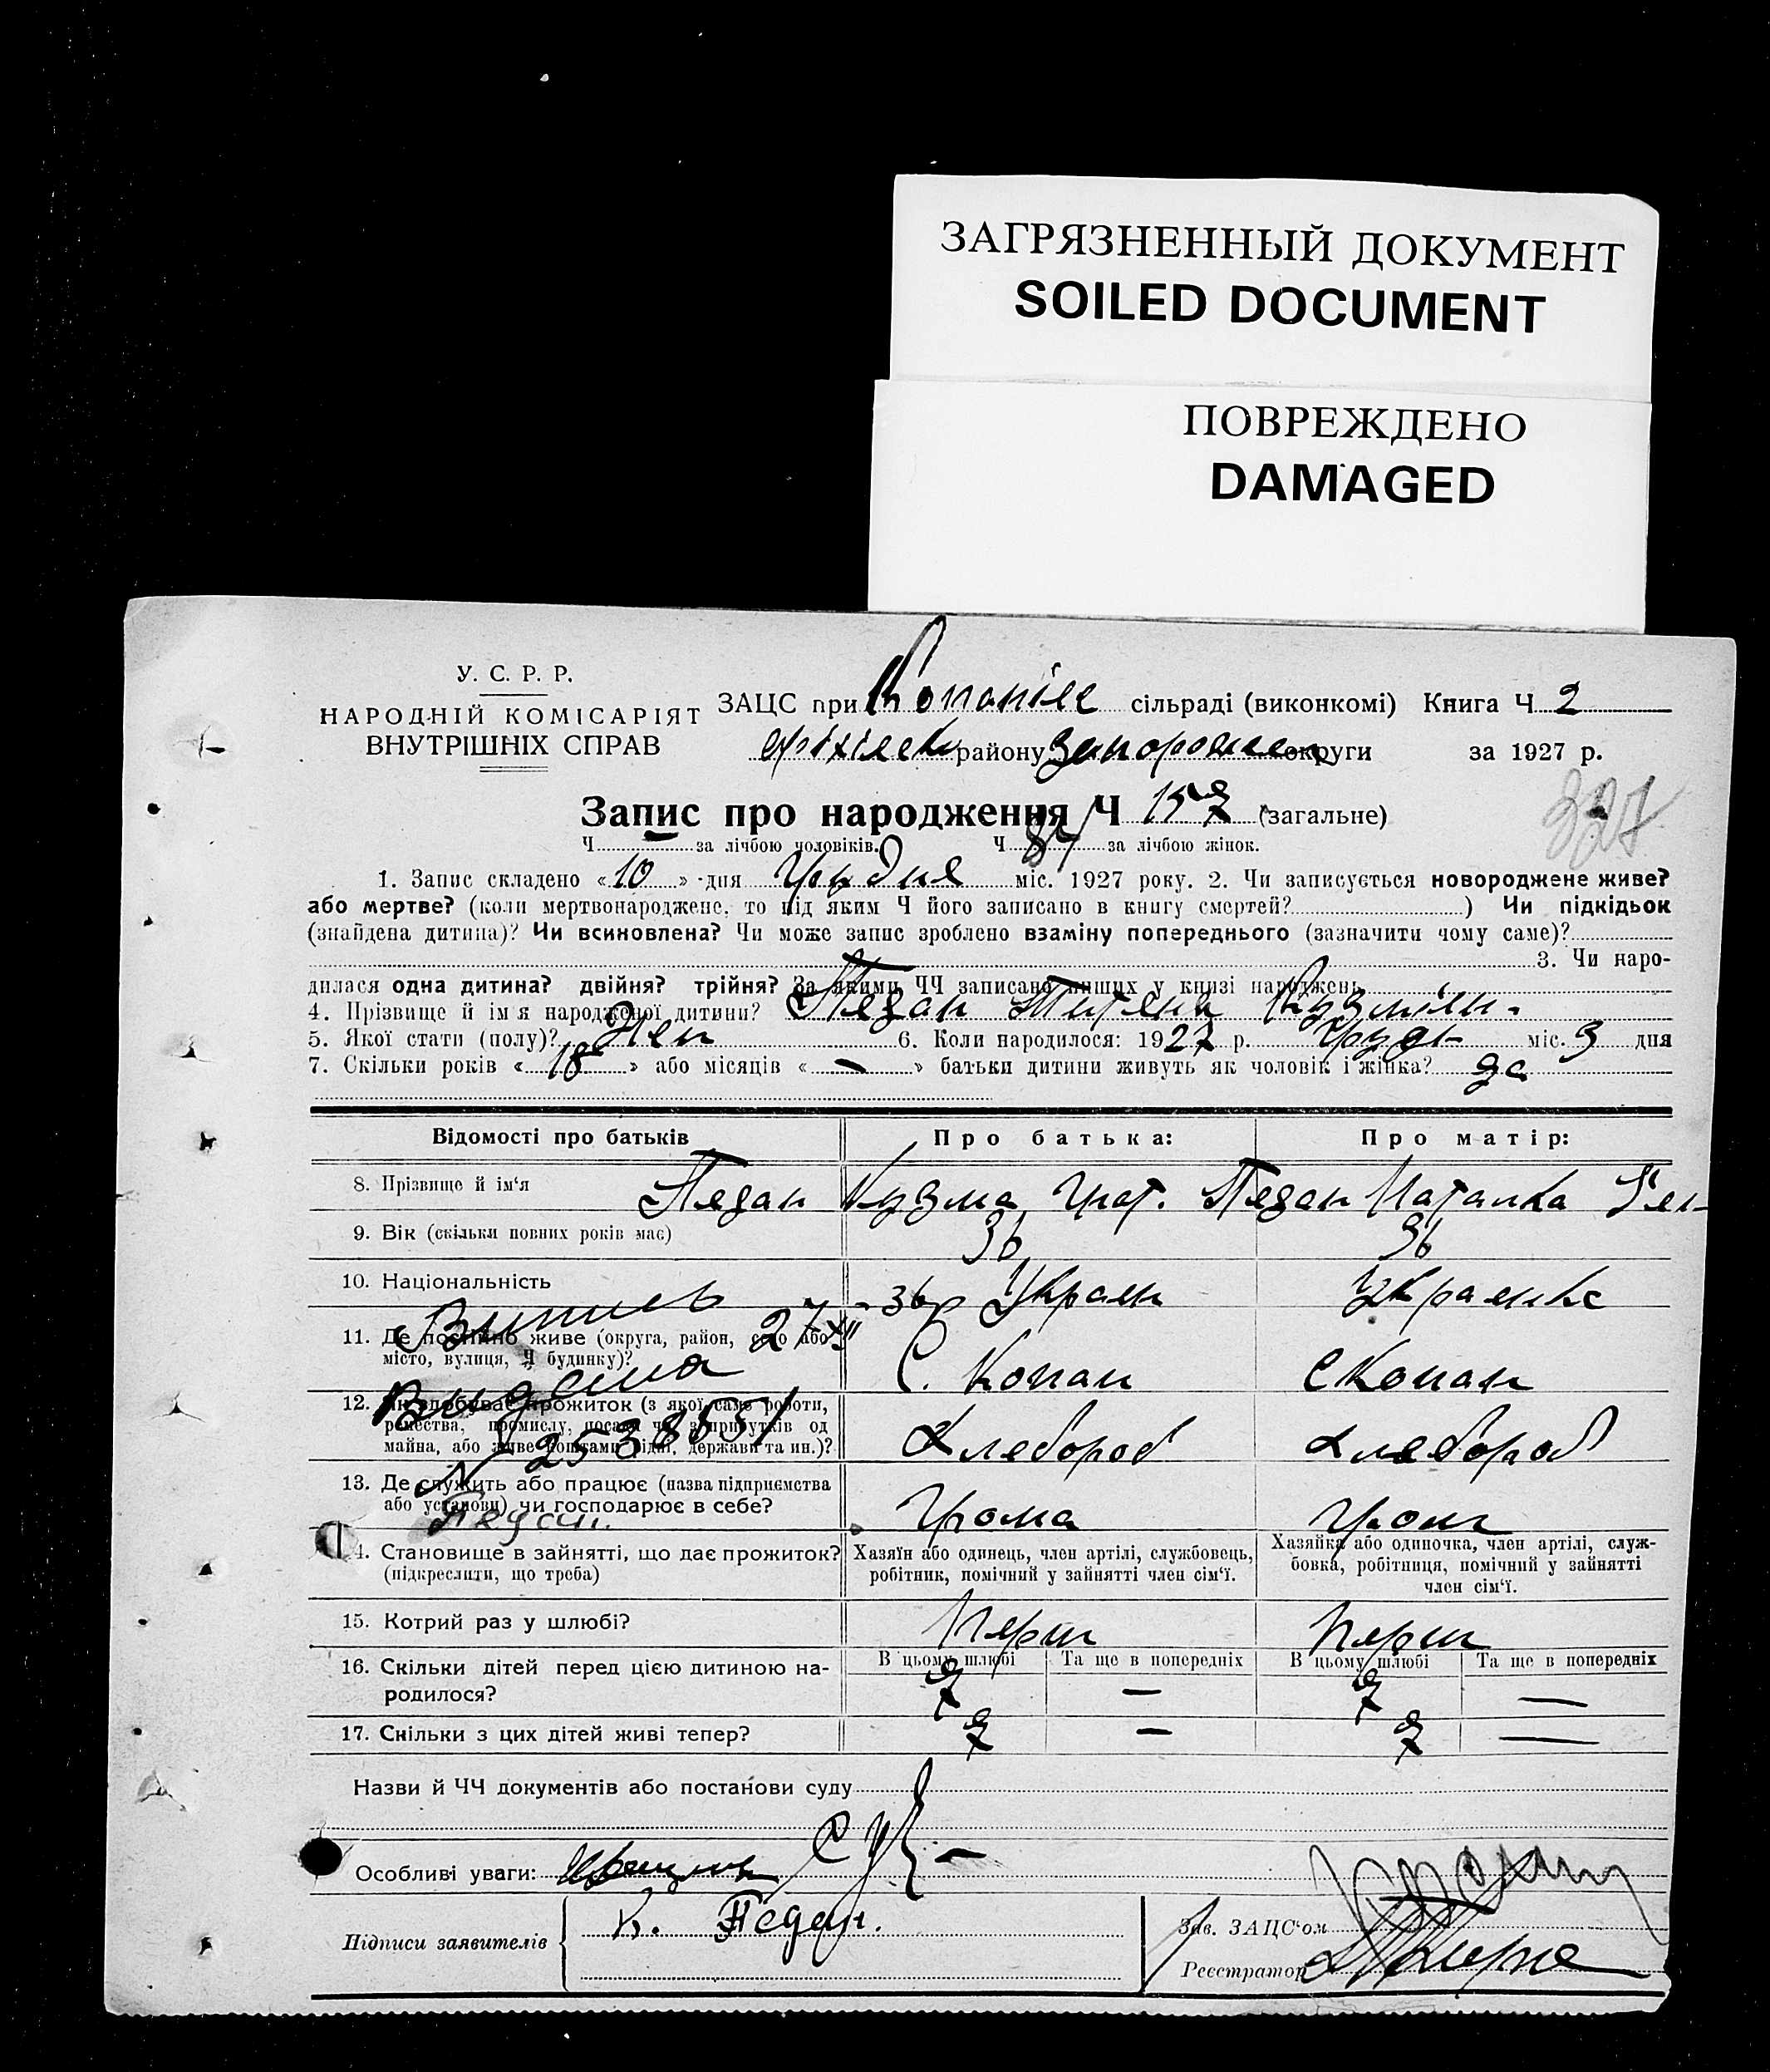 ЗАГРЯЗНЕННЫЙ ДОКУМЕНТ
SOILED DOCUMENT
ПОВРЕЖДЕНО
DAMAGED
У. С. Р. Р.
НАРОДНІЙ КОМІСАРІЯТ
ВНУТРІШНІХ СПРАВ
ЗАЦС при Копанськ сільраді (виконкомі) Книга Ч 2
району Запорожск округи за 1927 р.
327
Запис про народження Ч 157 (загальне)
Ч — за лічбою чоловіків. Ч 84 за лічбою жінок.
1. Запис складено « 10 » дня Грудня міс. 1927 року. 2. Чи записується новороджене живе?
або мертве? (коли мертвонароджене, то під яким Ч його записано в книгу смертей? ) Чи підкідьок
(знайдена дитина)? Чи всиновлена? Чи може запис зроблено взаміну попереднього (зазначити чому саме)?
3. Чи наро-
дилася одна дитина? двійня? трійня? За якими ЧЧ записано инших у книзі народжень
4. Прізвище й ім'я народженої дитини? Педан Титяна Кузмін.
5. Якої стати (полу)? Жен 6. Коли народилося: 1927 р. Груд- міс. 9 дня
7. Скільки років « 18 » або місяців « — » батьки дитини живуть як чоловік і жінка? да
Відомості про батьків Про батька: Про матір:
8. Прізвище й ім'я Педан Кузма Григ. Педан Наталка
9. Вік (скільки повних років має) 36 36
10. Національність Украін Украинка
Випись 27/XII
11. Де постійно живе (округа, район, село або місто, вулиця, Ч будинку)? С. Копан С Копан
Видана
12. Як здобуває прожиток (з якої саме роботи,
ремества, промислу, посади чи з прибутків од
майна, або живе коштами рідні, держави та ин.)? Хлебороб Хлебороб
№ 2538651
13. Де служить або працює (назва підприємства
або установи) чи господарює в себе?
Педан.
14. Становище в зайнятті, що дає прожиток?
(підкреслити, що треба)
Хазяїн або одинець, член артілі, службовець,
робітник, помічний у зайнятті член сім'ї.
Хазяйка або одиночка, член артілі, служ-
бовка, робітниця, помічний у зайнятті
член сім'ї.
15. Котрий раз у шлюбі? Перш Перш
В цьому шлюбі Та ще в попередніх В цьому шлюбі Та ще в попередніх
16. Скільки дітей перед цією дитиною на-
родилося? 7 — 7 —
17. Скільки з цих дітей живі тепер? 7 — 7 —
Назви й ЧЧ документів або постанови суду
Особливі уваги:
Підписи заявителів К. Педан.
Зав. ЗАЦС'ом
Реєстратор